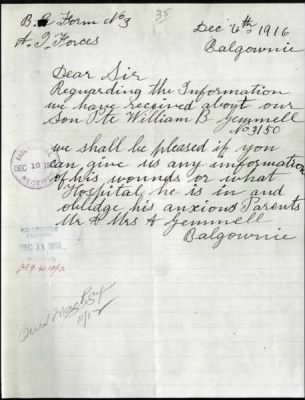 B.R. Form No 3
35
Dec 6th 1916
A. I. Forces
Balgownie
Dear Sir
Reguarding the Information
we have received about our
Son Pte William B Gemmell
No 3150
we shall be pleased if you
can give us any imformation
of his wounds or what
Hospital, he is in and
oblidge his anxious Parents
Mr & Mrs A Gemmell
Balgownie
DEC 10
DEC 11